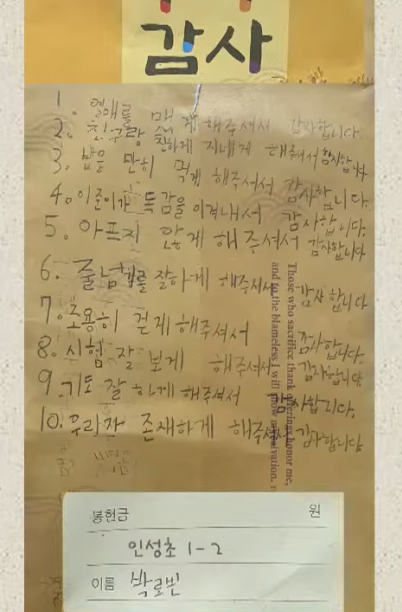 감사
1. 열매를 맺게 해주셔서 감사합니다.
2. 친구랑 친하게 지내게 해주셔서 감사합니다
3. 밥을 만히 먹게 해주셔서 감사합니다.
4. 이준이가 독감을 이겨내서 감사합니다.
5. 아프지 안게 해주셔서 감사합니다
6. 줄넘기를 잘하게 해주셔서 감사합니다
7. 조용히 걷게 해주셔서 감사합니다.
8. 시험 잘 보게 해주셔서 감사합니다
9. 기도 잘 하게 해주셔서 감사합니다.
10. 우리가 존재하게 해주셔서 감사합니다
Those who sacrifice thank offerings honor me,
and to the blameless I will show my salvation.
봉헌금 원
인성초 1-2
이름 박로빈